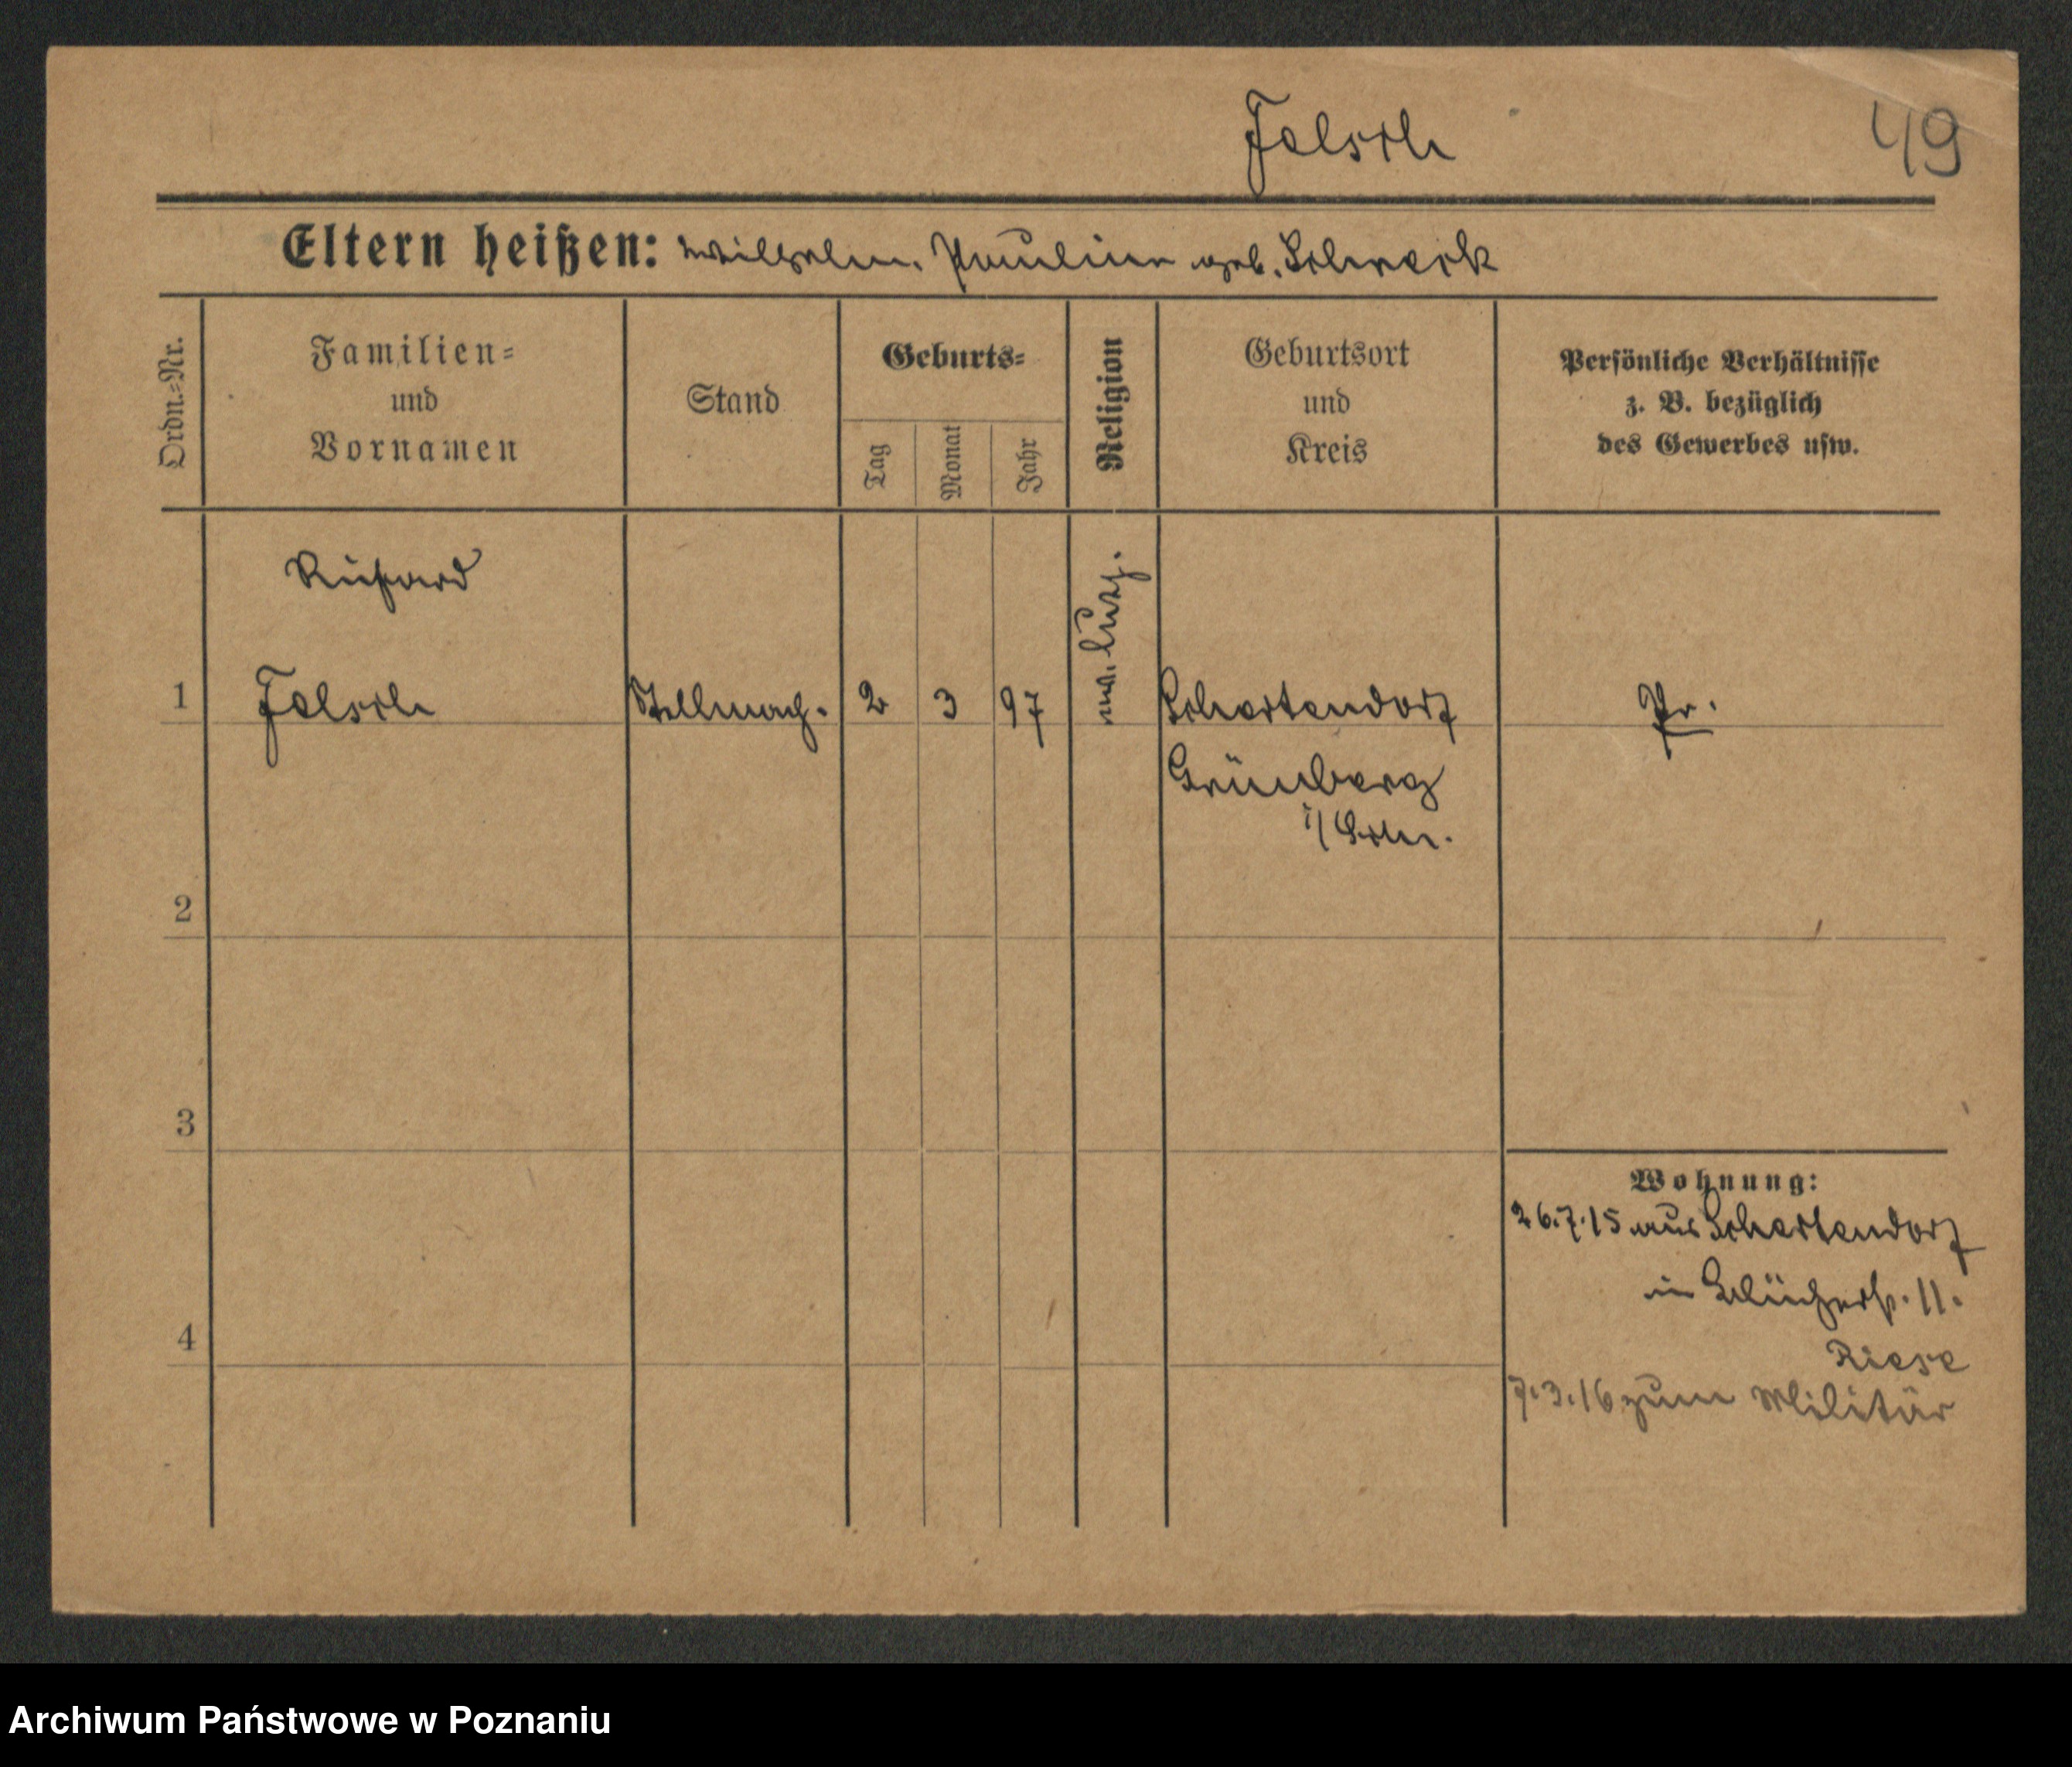 Felsch
49
Eltern heißen: Wilhelm. Pauline geb. Schreck
Ordn.-Nr.
Familien-
und
Vornamen
Stand
Geburts-
Tag
Monat
Jahr
Religion
Geburtsort
und
Kreis
Persönliche Verhältnisse
z. B. bezüglich
des Gewerbes usw.
Richard
1 Felsch Stellmach. 2 3 97 ev. luth. Schertendorf Pr.
Grünberg
i/Schl.
2
3
4
Wohnung:
26.7.15 aus Schertendorf
in Blücherstr. 11.
Riese
7.3.16 zum Militär
Archiwum Państwowe w Poznaniu